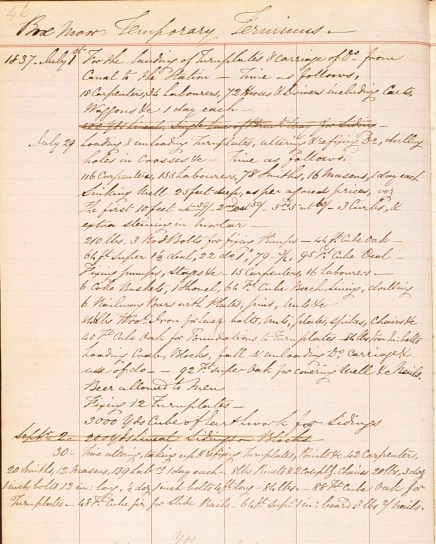 46
Box Moor Temporary Terminus —
1837. July 1st For the landing of Turnplates & Carriage of Do. from
Canal to the Station — Time as follows,
18 Carpenters, 36 Labourers, 72 Horses & Drivers including Carts,
Waggons &c 1 day each —
July 29 Loading & unloading Turnplates, altering & refixing Do, drilling
holes in Crosses &c — Time as follows,
116 Carpenters, 155 Labourers, 78 Smiths, 16 Masons 1 day each
Sinking Well 25 feet deep, as per agreed prices, viz
The first 10 feet at 3 Curbs, &
extra steining in mortar —
210 lbs. 3 Rod Bolts for fixing Pumps — 44 ft Cube Oak —
64 ft super 1½ deal, 22 do 1, 79 — ¾, 95 ft Cube Deal —
Fixing pumps, Stops &c — 15 Carpenters, 16 Labourers —
6 Coke Baskets, 1 Shovel, 64 ft Cube Beech Lining, drilling
6 Railway Bars with Plates, pins, nuts &c
Wrot Iron for bolts, nuts, plates, spikes, Chains &c
40 ft Cube Oak for Foundations to Turnplates bolts
Loading Coals, Blocks, fall & unloading Do Carriage &
use of do — 92 ft super Oak for covering Well & Nails.
Beer allowed to Men
Fixing 12 Turnplates —
3000 Yds Cube of Earthwork for Sidings
Septr 2 — 200 Yds Lineal Sidings on Blocks
30 — Time altering, taking up & Turnplates, Points &c 42 Carpenters,
20 Smiths, 12 Masons, 139 Labrs 1 day each — 8 lbs Rivets & 2 Chains 20 lbs, 3 doz
inch bolts 13 in: long, ½ doz ¾ inch bolts 4 ft long — 84 lbs — 88 ft Cube Oak for
Turnplates — 48 ft Cube fir, for Slide Rails. 64 ft Supl 1 in: board 3 lbs of Nails.